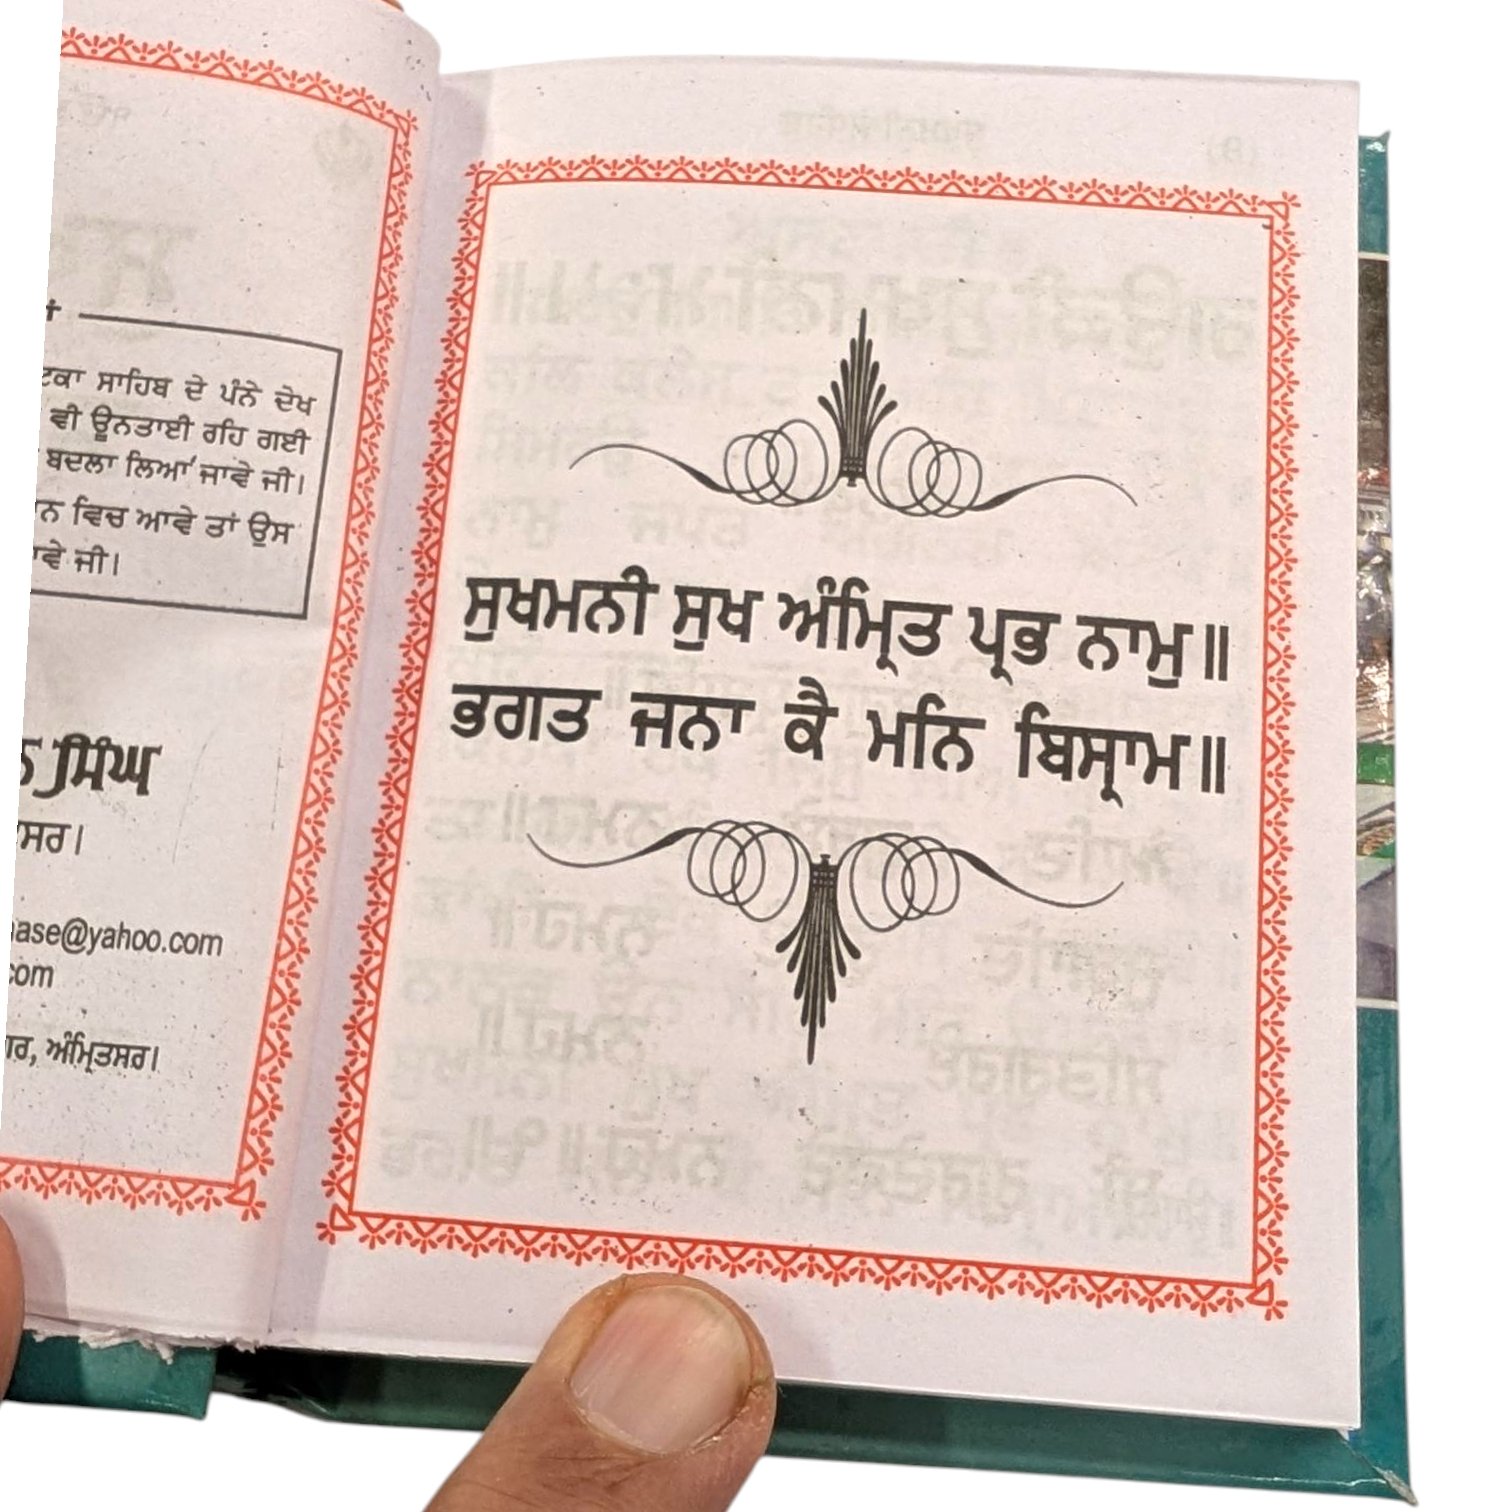 ਸਾਹਿਬ ਦੇ ਪੰਨੇ ਦੇਖ
ਵੀ ਊਨਤਾਈ ਰਹਿ ਗਈ
ਬਦਲਾ ਲਿਆ ਜਾਵੇ ਜੀ।
ਵਿਚ ਆਵੇ ਤਾਂ ਉਸ
ਜੀ।
ਸਿੰਘ
ase@yahoo.com
com
ਅੰਮ੍ਰਿਤਸਰ।
ਸੁਖਮਨੀ ਸੁਖ ਅੰਮ੍ਰਿਤ ਪ੍ਰਭ ਨਾਮੁ॥
ਭਗਤ ਜਨਾ ਕੈ ਮਨਿ ਬਿਸ੍ਰਾਮ॥